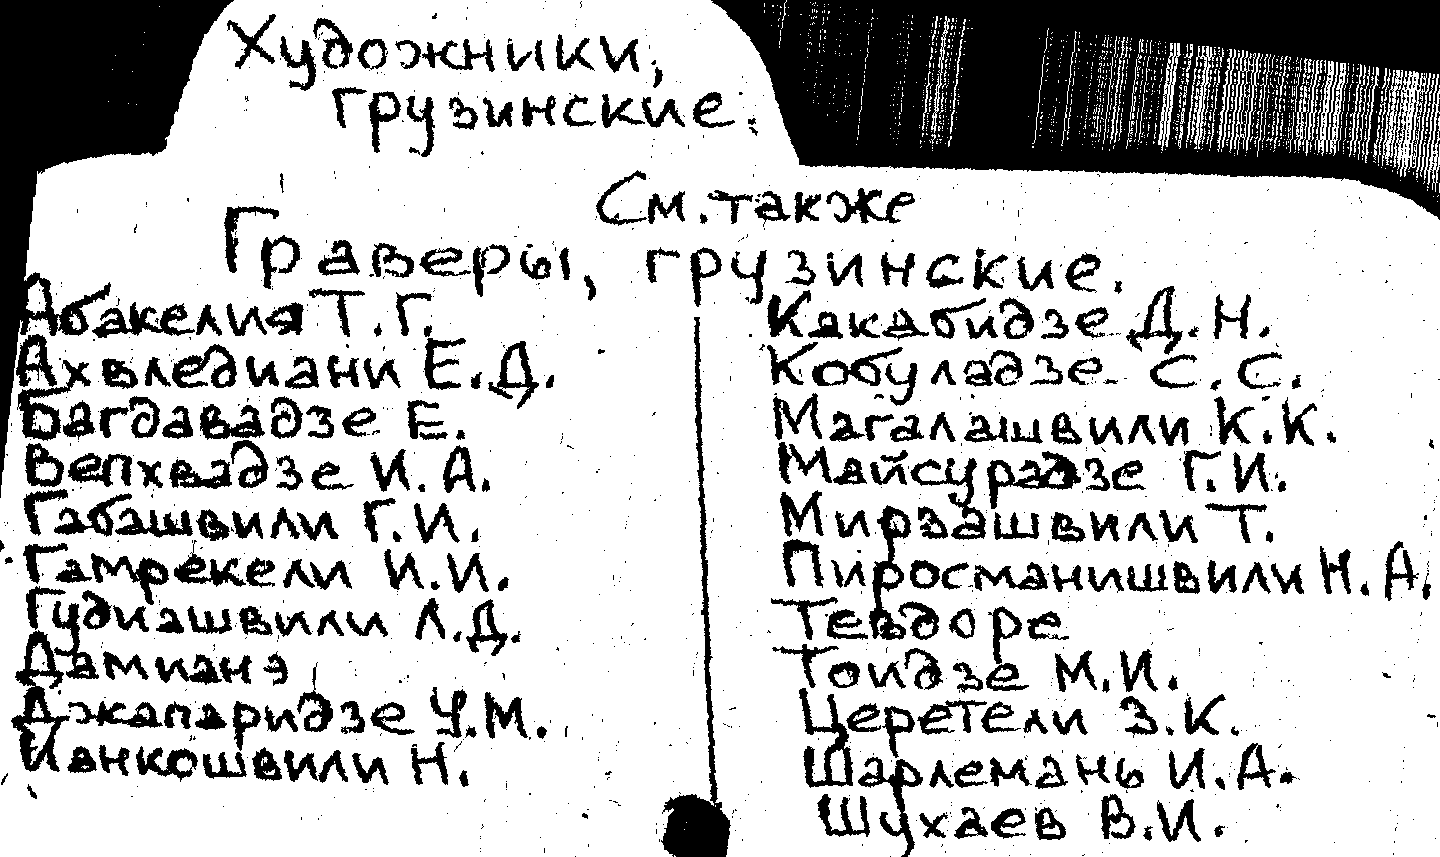 Художники,
грузинские.
См. также
Граверы, грузинские.
Абакелия Т.Г.
Ахвледиани Е.Д.
Багдавадзе Е.
Вепхвадзе И.А.
Габашвили Г.И.
Гамрекели И.И.
Гудиашвили Л.Д.
Дамианэ
Джапаридзе У.М.
Ианкошвили Н.
Какабидзе Д.Н.
Кобуладзе С.С.
Магалашвили К.К.
Майсурадзе Г.И.
Мирзашвили Т.
Пиросманишвили Н.А.
Тевдоре
Тоидзе М.И.
Церетели З.К.
Шарлемань И.А.
Шухаев В.И.